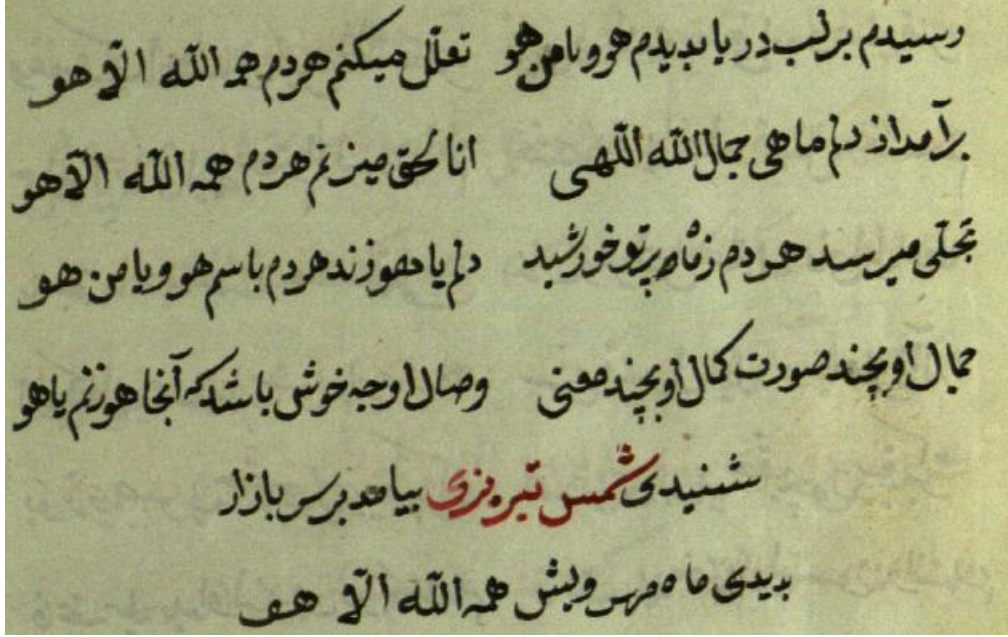 رسیدم بر لب دریا بدیدم هو و یا من هو تعلل میکنم هردم هو الله الا هو
برآمد از دلم ماهی جمال الله اللهی انا لحق میزنم هردم همه الله الا هو
تجلی میرسد هردم زماه پرتو خورشید دلم یا هو زند هردم باسم هو و یا من هو
جمال او بچند صورت کمال او بچند معنی وصال او چه خوش باشد که آنجا هو زنم یا هو
شنیدی شمس تبریزی بیامد بر سر بازار
بدیدی ماه همه الله الا هو